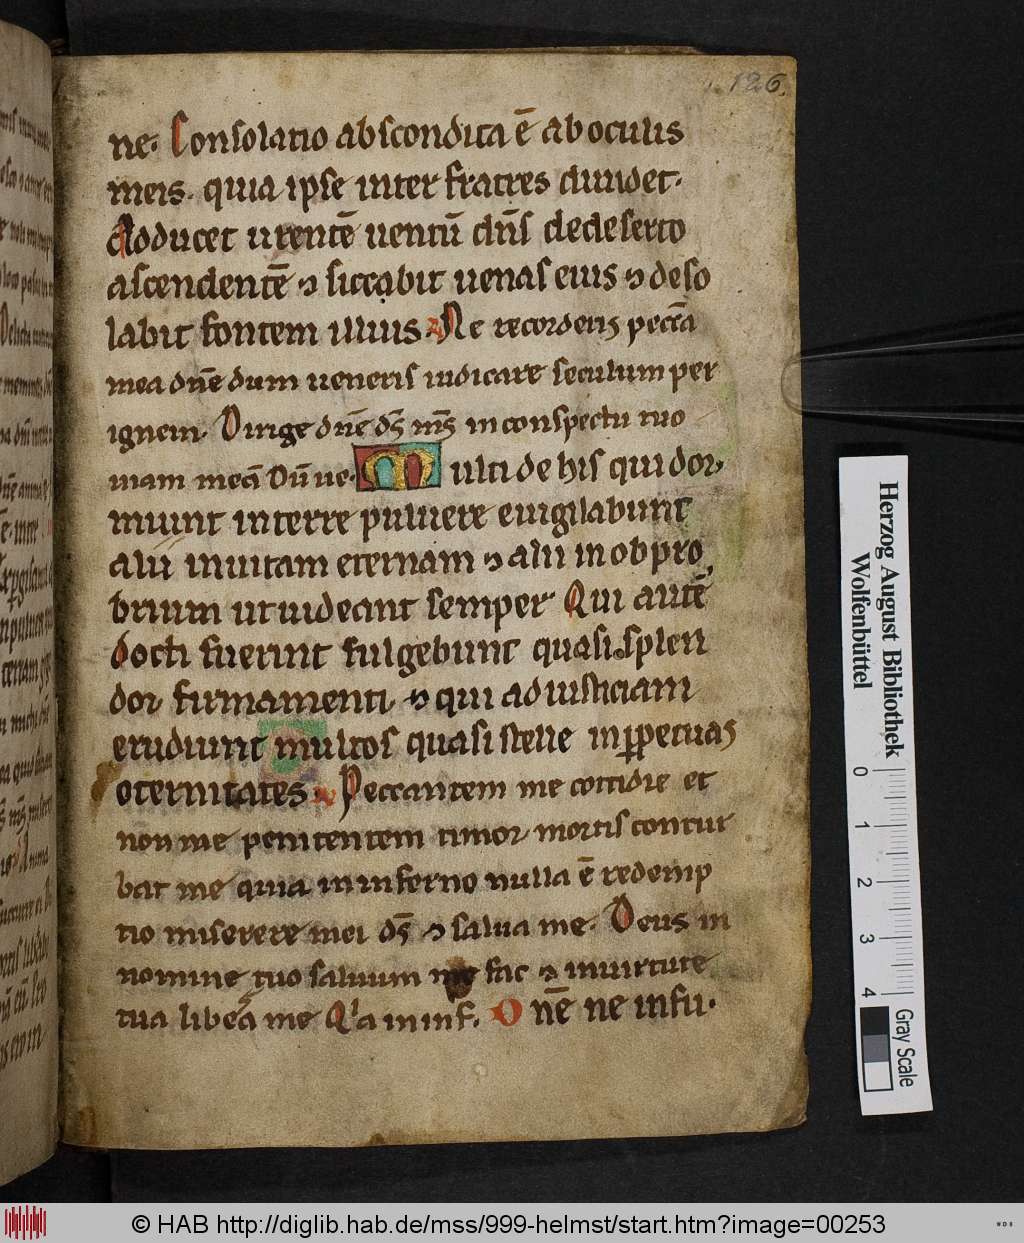 126.
ne. Consolatio abscondita ē ab oculis
meis. quia ipse inter fratres diuidet.
Adducet urentē uentū dn̄s de deserto
ascendentē ⁊ siccabit uenas eius ⁊ deso
labit fontem illius. R Ne recorderis peccā
mea dn̄e dum ueneris iudicare seculum per
ignem. V Dirige dn̄e ds̄ ms̄ in conspectu tuo
uiam meā Dū ue. Multi de his qui dor,
miunt in terre puluere euigilabunt
alii in uitam eternam ⁊ alii in obpro,
brium ut uideant semper Qui autē
docti fuerint fulgebunt quasi splen
dor firmamenti ⁊ qui ad iusticiam
erudiunt multos quasi stelle in ꝑpetuas
eternitates. R Peccantem me cottidie et
non me penitentem timor mortis contur
bat me quia in inferno nulla ē redemp
tio miserere mei ds̄ ⁊ salua me. V Deus in
nomine tuo saluum me fac ⁊ in uirtute
tua libeā me Qa in inf. Dn̄e ne in fu.
Herzog August Bibliothek
Wolfenbüttel
0 1 2 3 4
Gray Scale
© HAB http://diglib.hab.de/mss/999-helmst/start.htm?image=00253